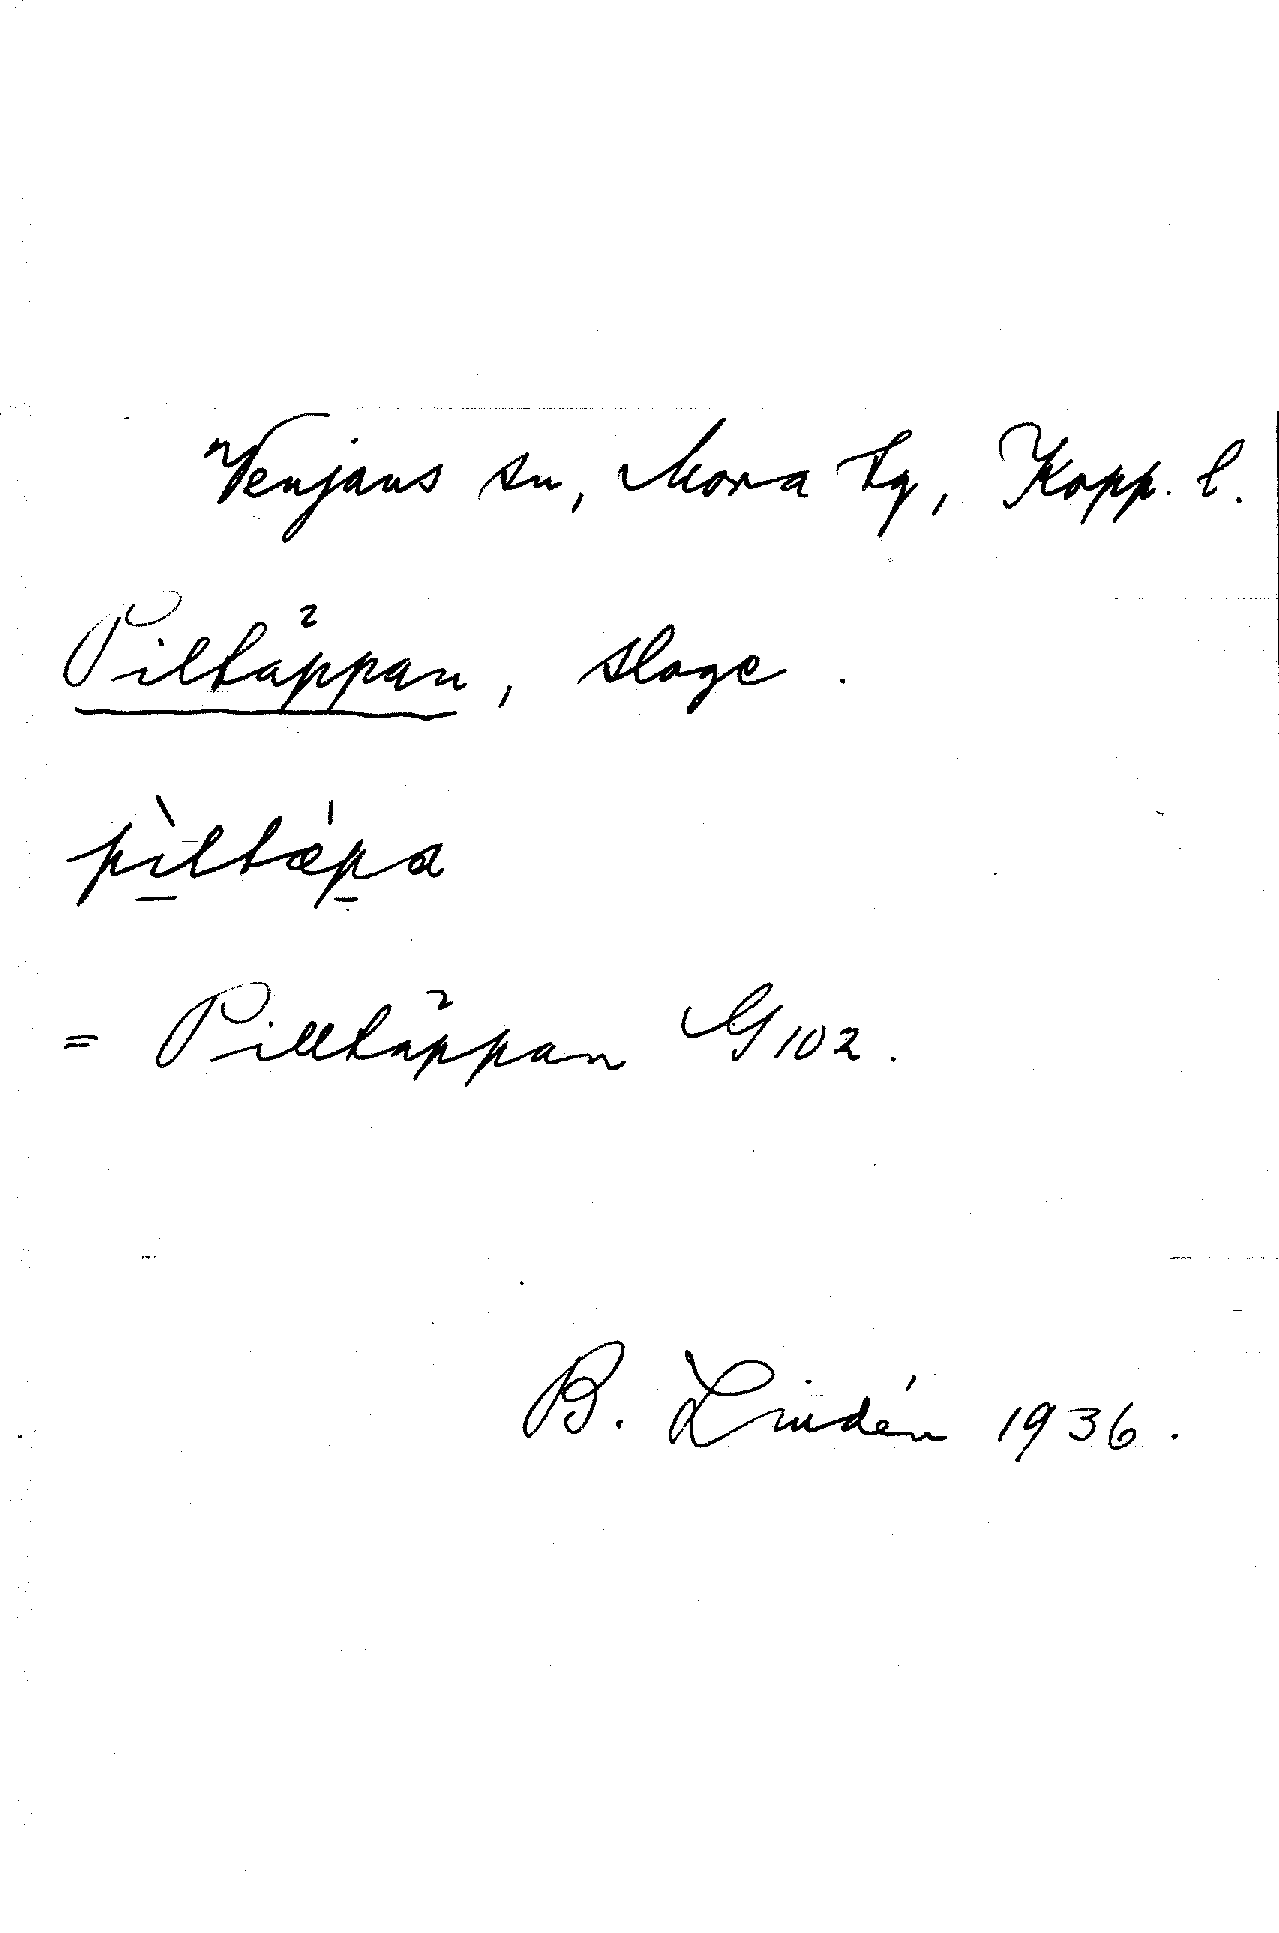 Venjans sn, Mora tg, Kopp. l.
Piltäppan, sloge.
pìltæ̀pa
= Pilltäppan G 102.
B. Lindén 1936.